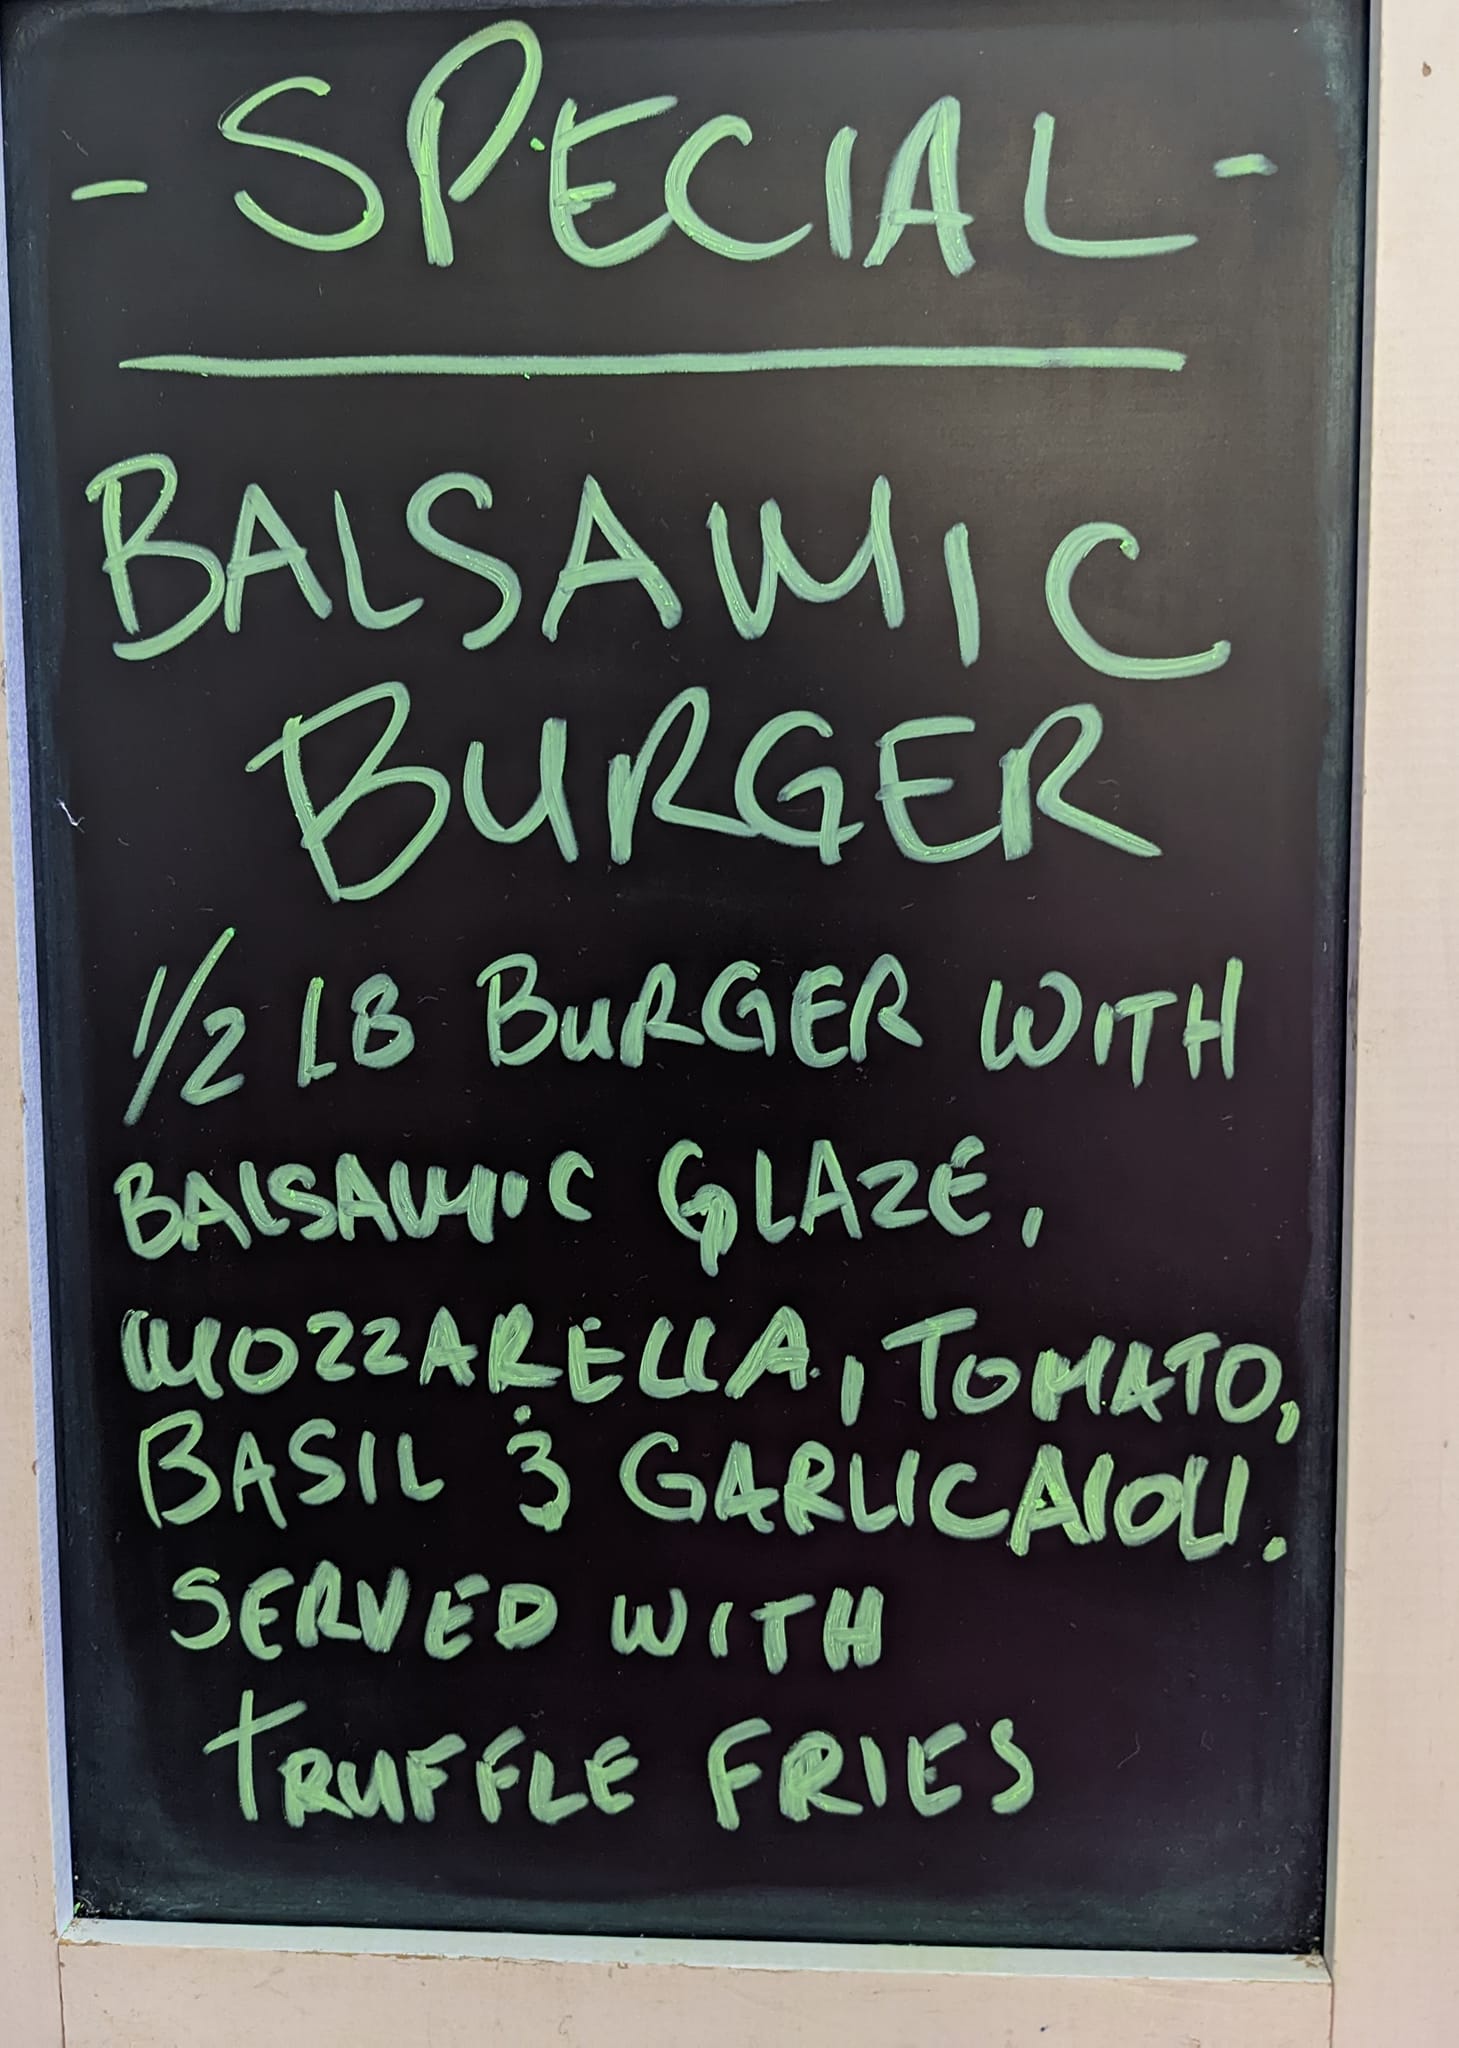 - SPECIAL -
BALSAMIC
BURGER
1/2 LB BURGER WITH
BALSAMIC GLAZE,
MOZZARELLA, TOMATO,
BASIL & GARLIC AIOLI.
SERVED WITH
TRUFFLE FRIES